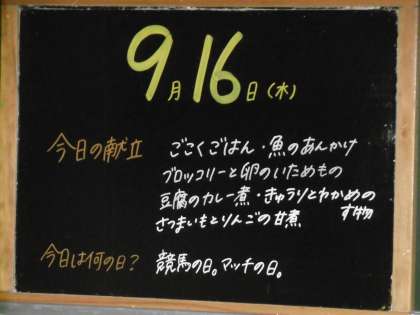 9月16日(水)
今日の献立 ごこくごはん・魚のあんかけ
ブロッコリーと卵のいためもの
豆腐のカレー煮・きゅうりとわかめの
す物
さつまいもとりんごの甘煮
今日は何の日? 競馬の日。マッチの日。